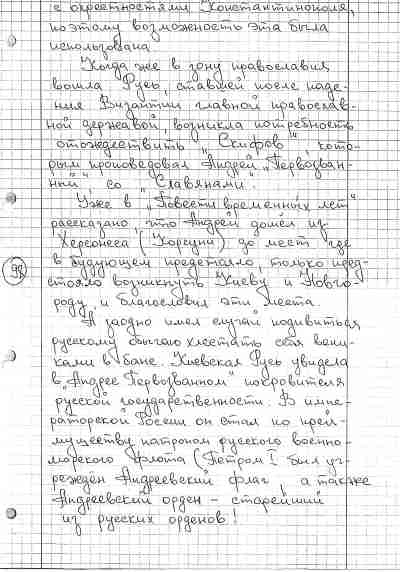 с окрестностями Константинополя,
поэтому возможность эта была
использована
Когда же в зону православия
вошла Русь, ставшей после паде-
ния Византии главной православ-
ной державой, возникла потребность
отождествить "Скифов", кото-
рым проповедовал Андрей "Первозван-
ный", со "Славянами".
Уже в "Повести временных лет"
рассказано, что Андрей дошёл из
Херсонеса (Корсуни) до мест где
в будующем предстояло, только пред-
стояло возникнуть Киеву и Новго-
роду, и благословил эти места.
98
А заодно имел случай подивиться
русскому обычаю хлестать себя вени-
ками в бане. Киевская Русь увидела
в "Андрее Первозванном" покровителя
русской государственности. В импе-
раторской России он стал по преи-
муществу патроном русского военно-
морского флота (Петром I был уч-
реждён Андреевский флаг, а также
Андреевский орден – старейший
из русских орденов!